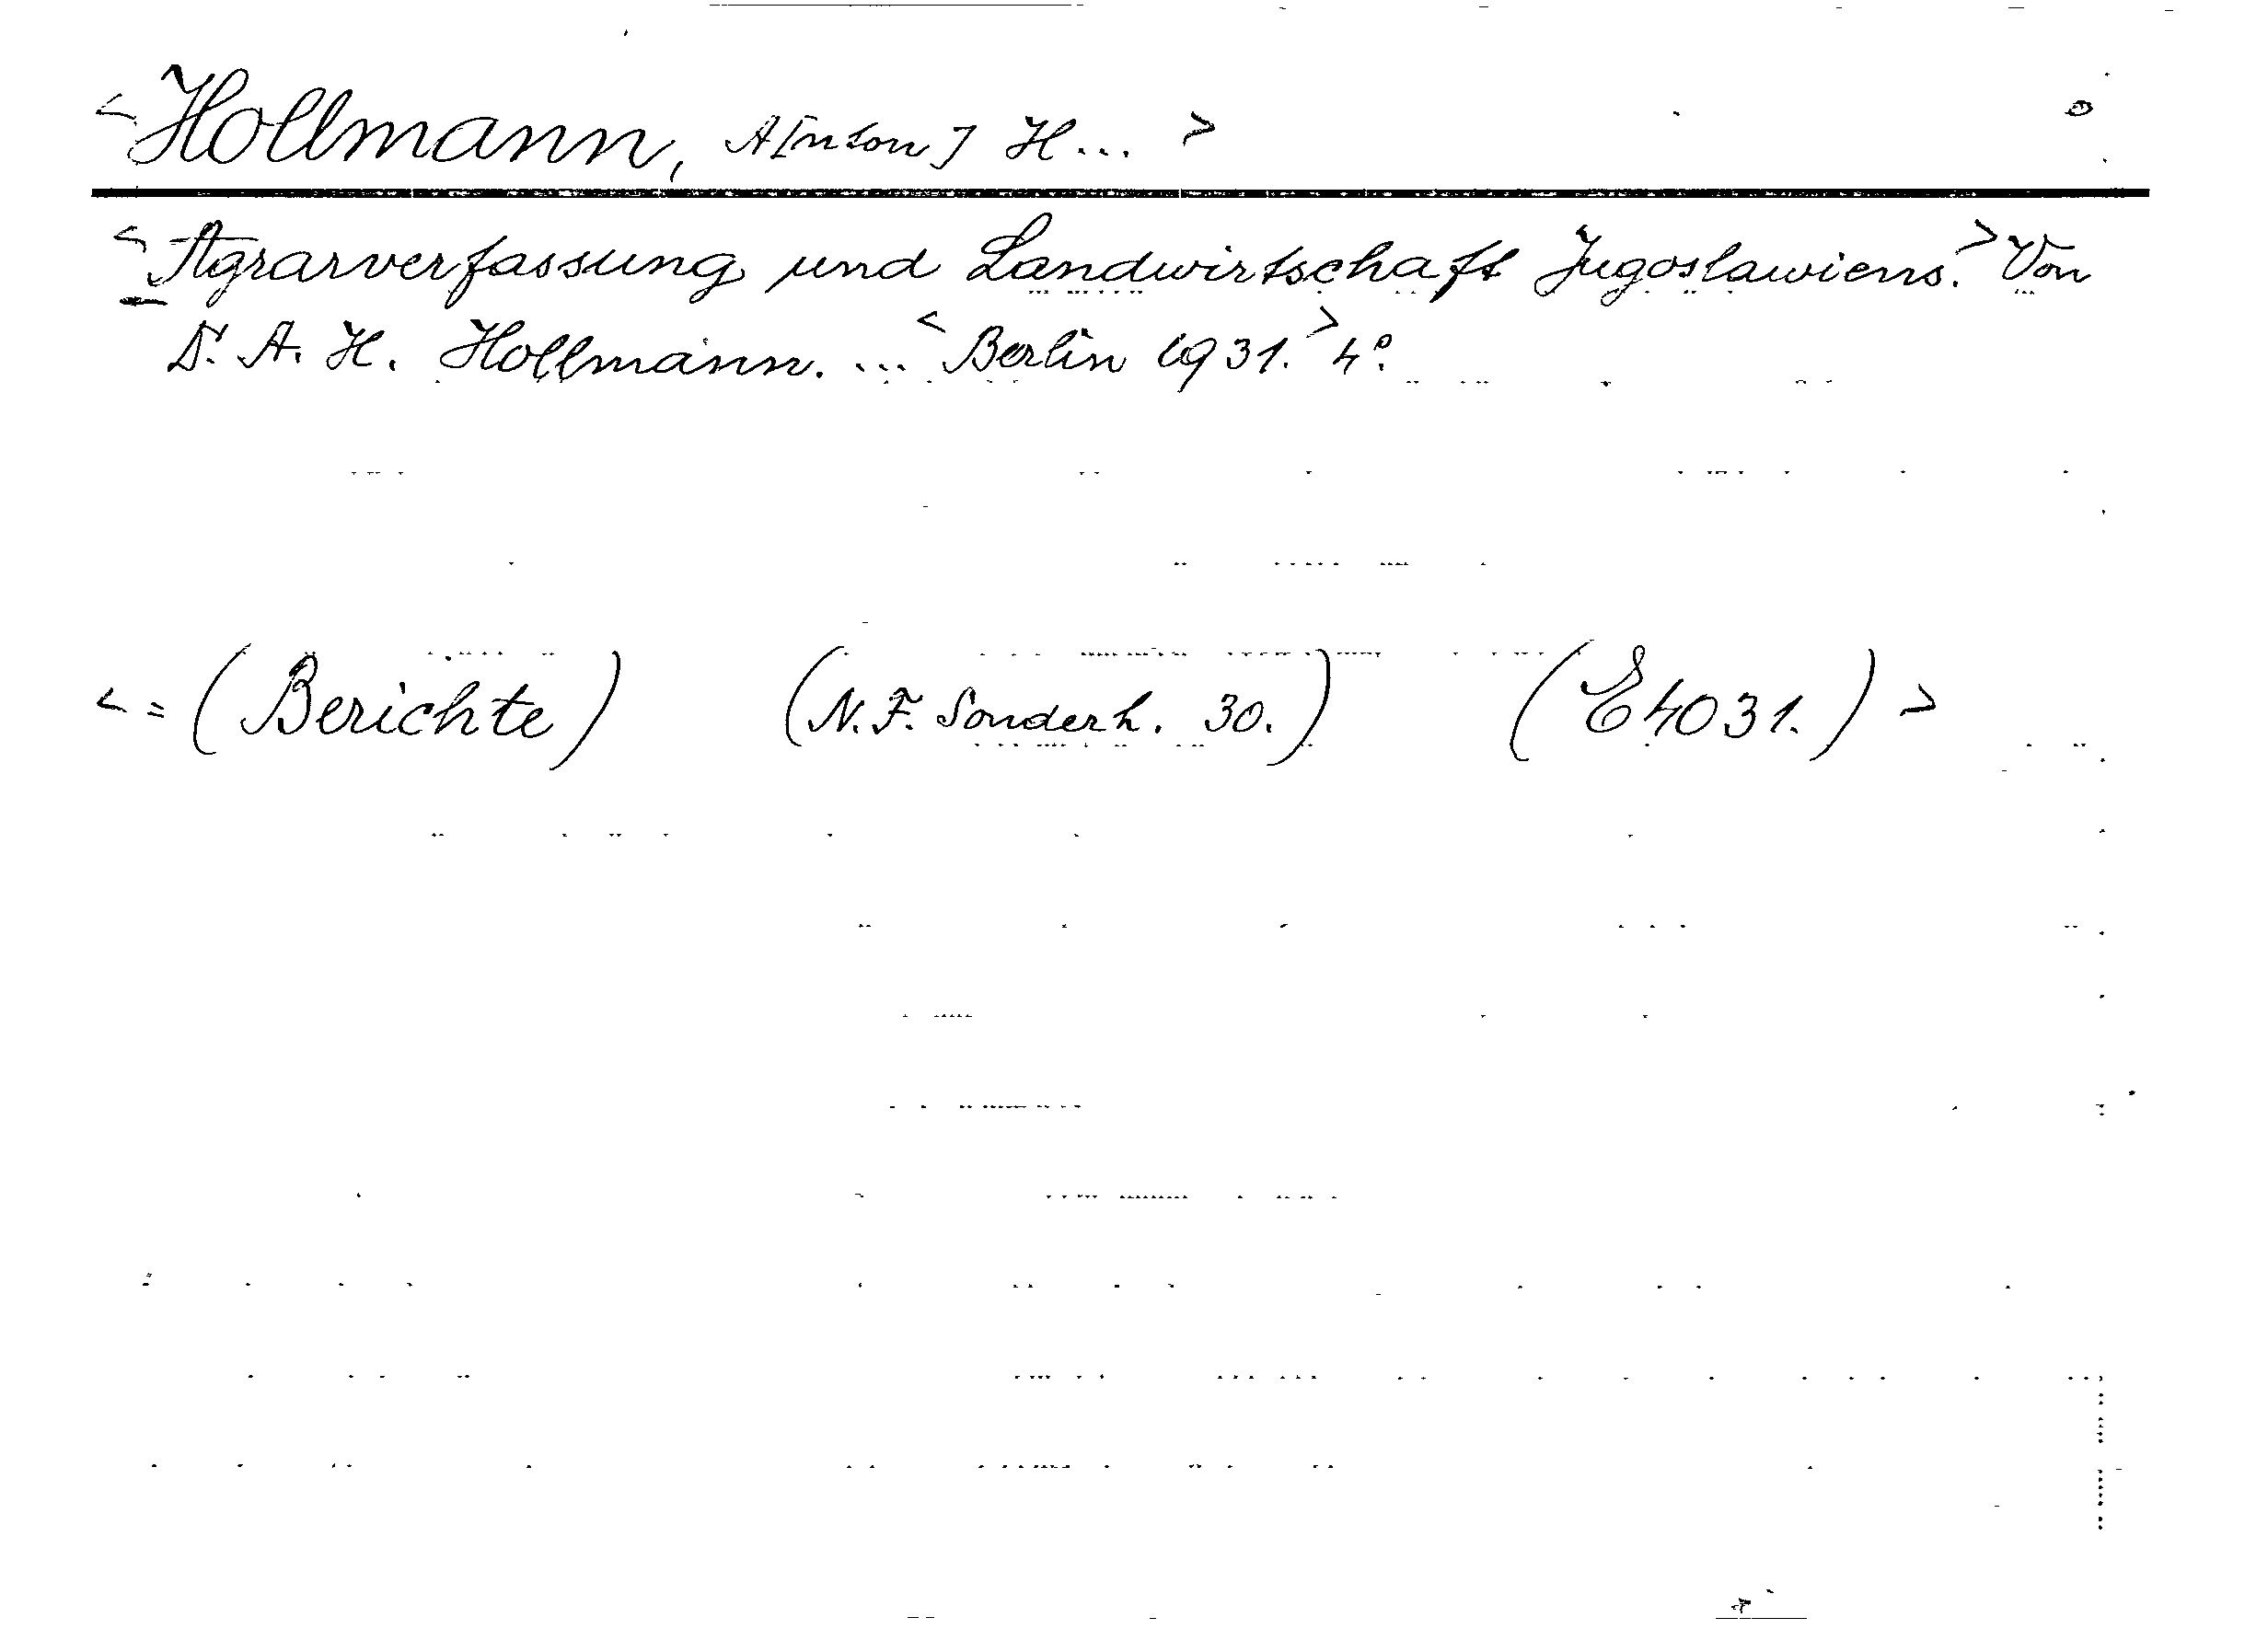 <Hollmann, A[nton] H... >
<Agrarverfassung und Landwirtschaft Jugoslawiens.> Von
Dr. A. H. Hollmann. ... <Berlin 1931.> 4°.
<=(Berichte) (N.F. Sonderh. 30.) (E4031.)>